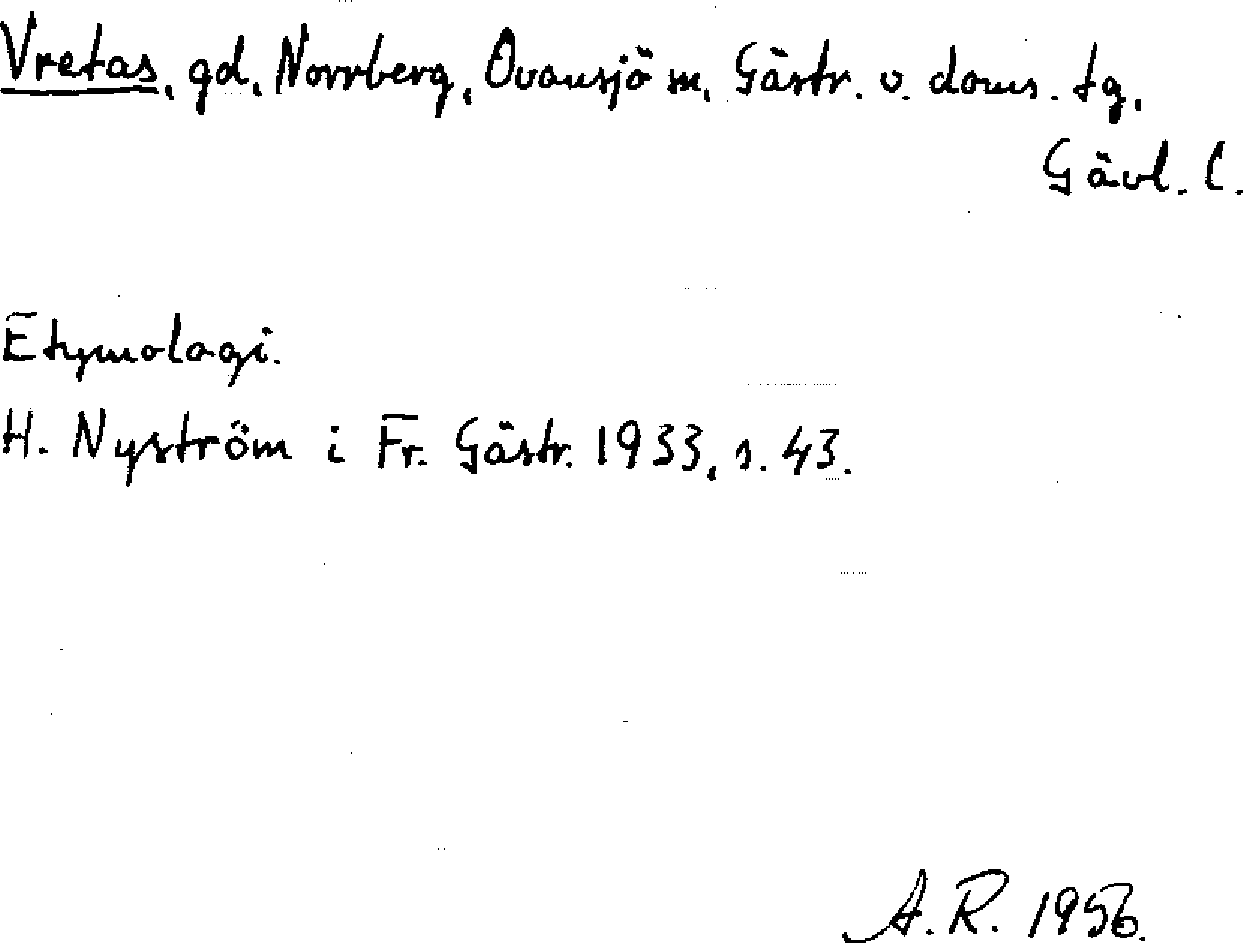 Vretas, gd, Norrberg, Ovansjö sn, Gästr. v. doms. tg,
Gävl. l.
Etymologi.
H. Nyström i Fr. Gästr. 1933, s. 43.
A. R. 1956.